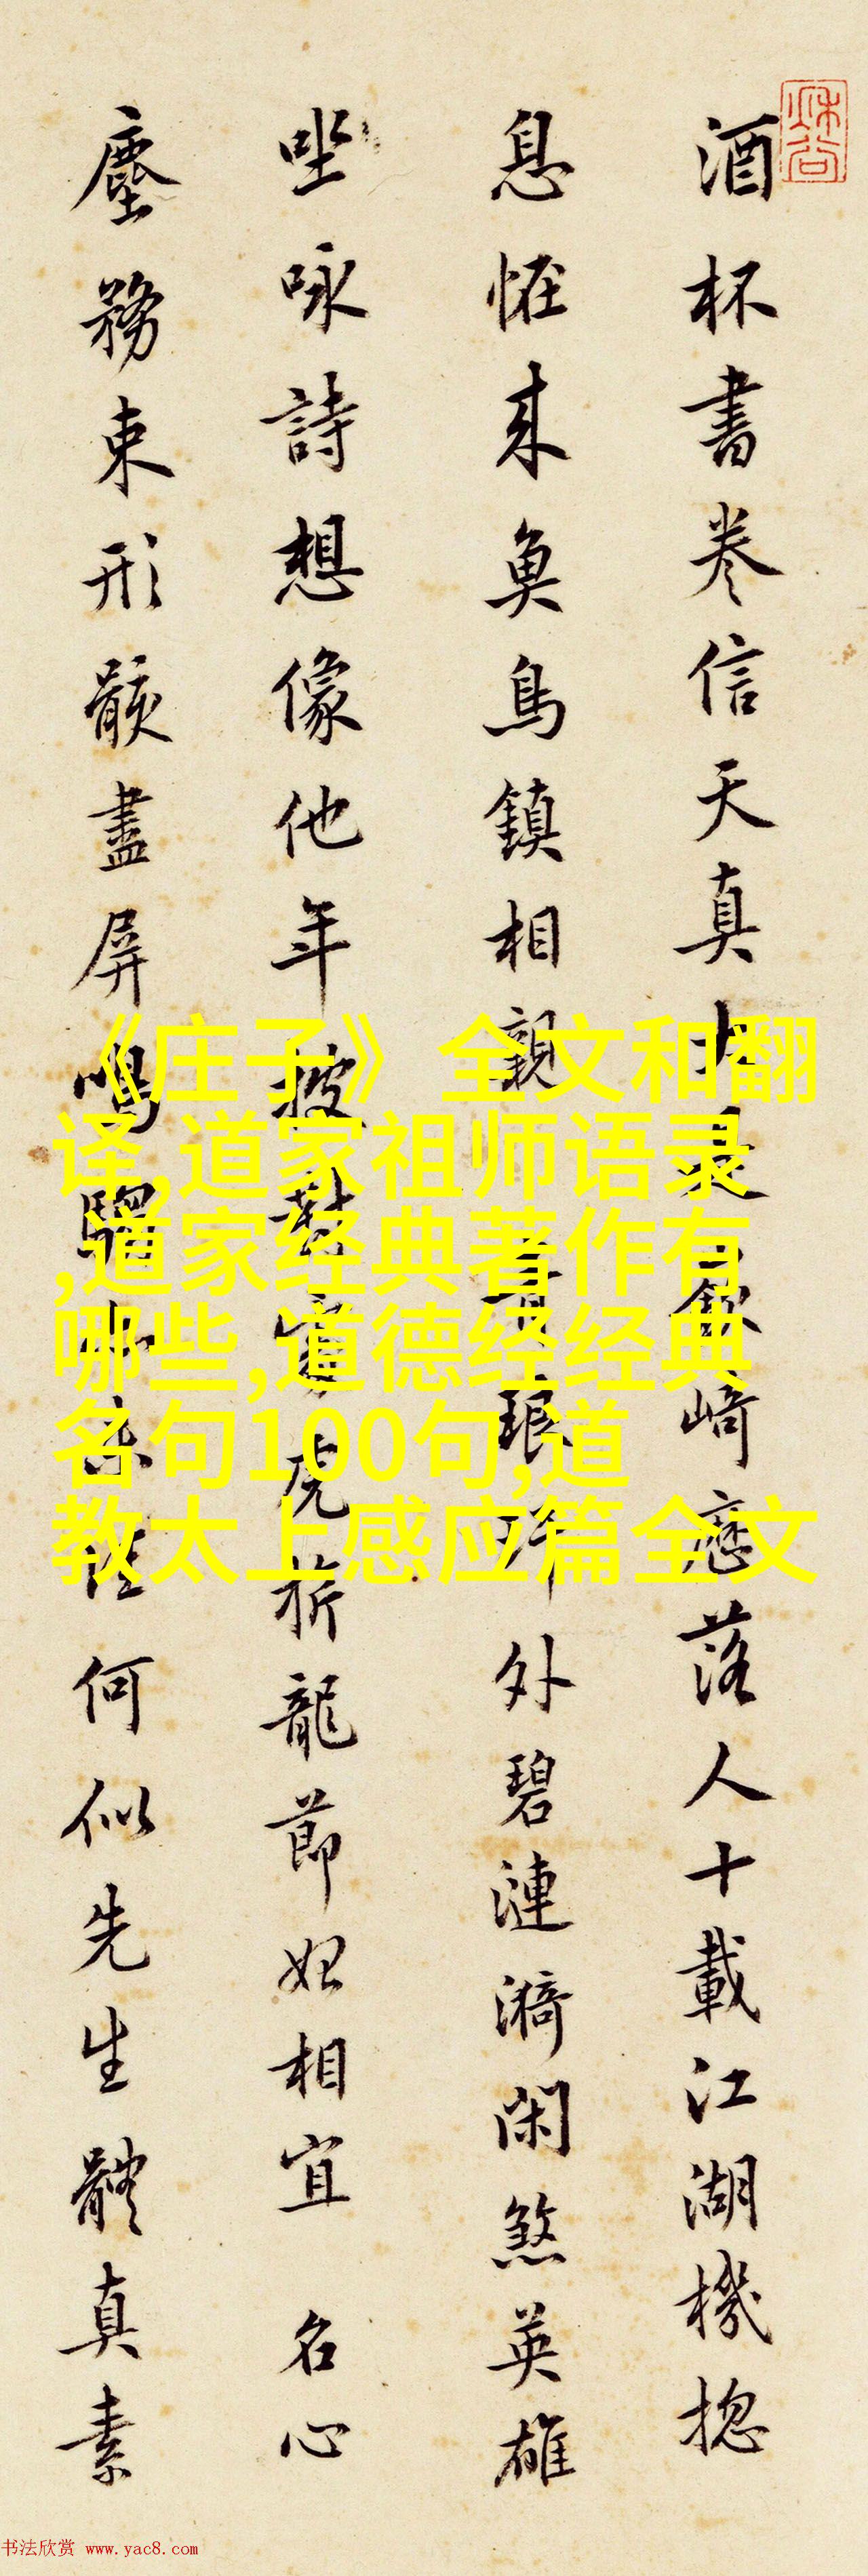 酒杯書卷信天真大是嶔崎歷落人十載江湖機揔
息怪來魚鳥鎮相親 青琅玕外碧漣漪閑煞英雄
坐咏詩想像他年披對處虎旂龍節好相宜 名心
塵務束形骸盡屏鳴騶亦未佳何似先生體真素
《庄子》全文和翻
译,道家祖师语录
,道家经典著作有
哪些,道德经经典
名句100句,道
教太上感应篇全文
书法欣赏 www.yac8.com